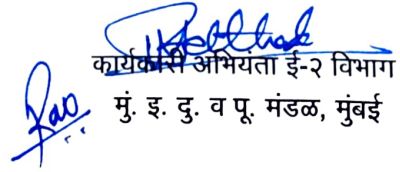 कार्यकारी अभियंता ई-२ विभाग
मुं. इ. दु. व पू. मंडळ, मुंबई
Rao